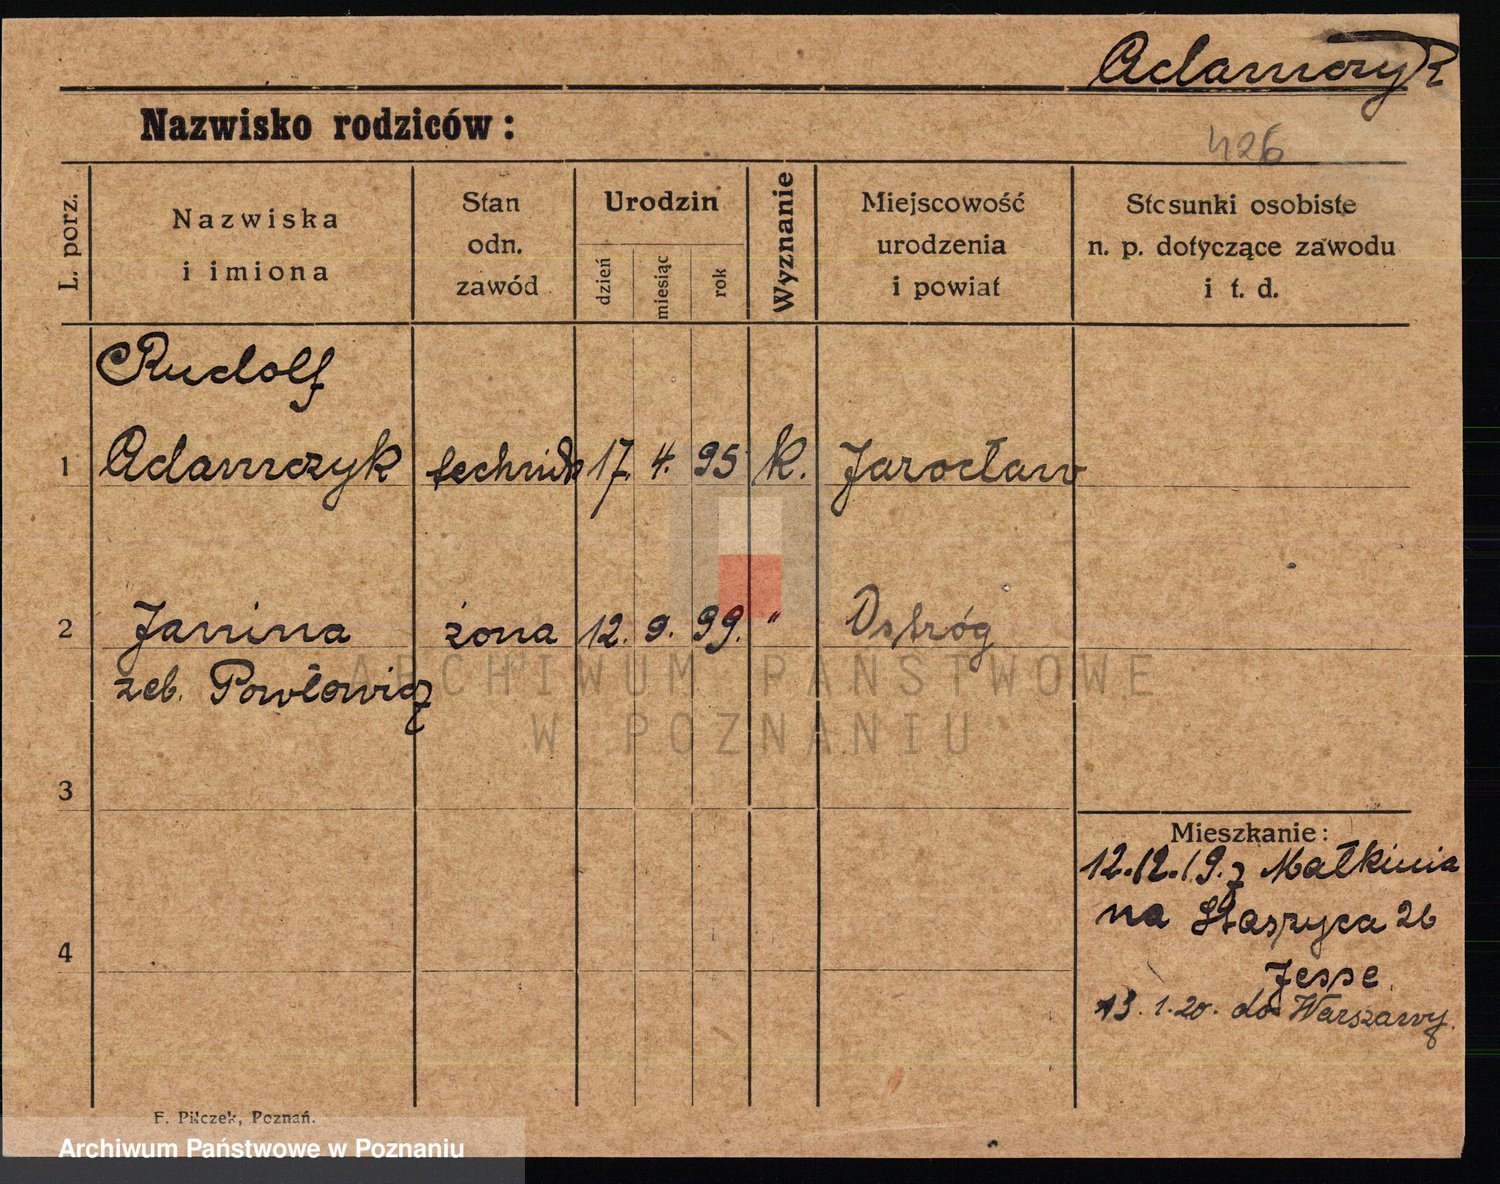 Adamczyk
Nazwisko rodziców:
426
L. porz.
Nazwiska
i imiona
Stan
odn.
zawód
Urodzin
dzień
miesiąc
rok
Wyznanie
Miejscowość
urodzenia
i powiat
Stosunki osobiste
n. p. dotyczące zawodu
i t. d.
Rudolf
1 Adamczyk technik 17. 4. 95 k. Jarocław
2 Janina żona 12. 9. 99. " Ostróg
zeb. Powłowicz
ARCHIWUM PAŃSTWOWE
W POZNANIU
3
Mieszkanie:
12.12.19. z Małkinia
na Staszyca 26
4
Jesse
13. 1. 20. do Warszawy.
F. Pilczek, Poznań.
Archiwum Państwowe w Poznaniu